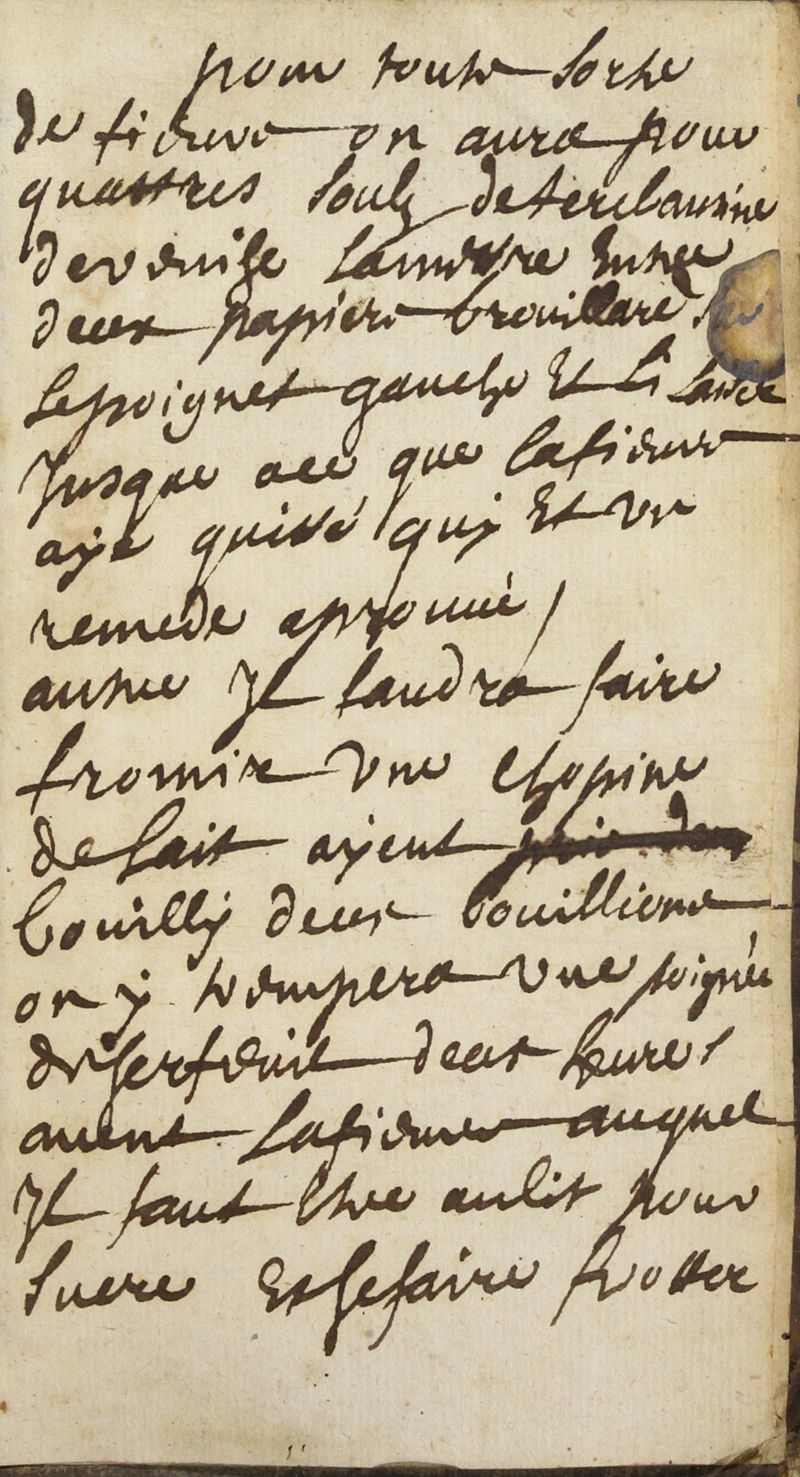 pour toute sorte
de fievre on aura pour
quattres soulz de terebantine
de venise la mettre entre
deux papiers brouillard sur
le poignet gauche et l'i laisser
jusque a ce que la fievre
aye quitté quy et un
remede aprouvé /
autre Jl faudra faire
fromir une chopine
de lait ayent
bouilly deux bouillions
on y trempera une poignée
de serfeuil deux heures
avent la fievre auquel
Jl faut estre au lit pour
suere et se faire frotter